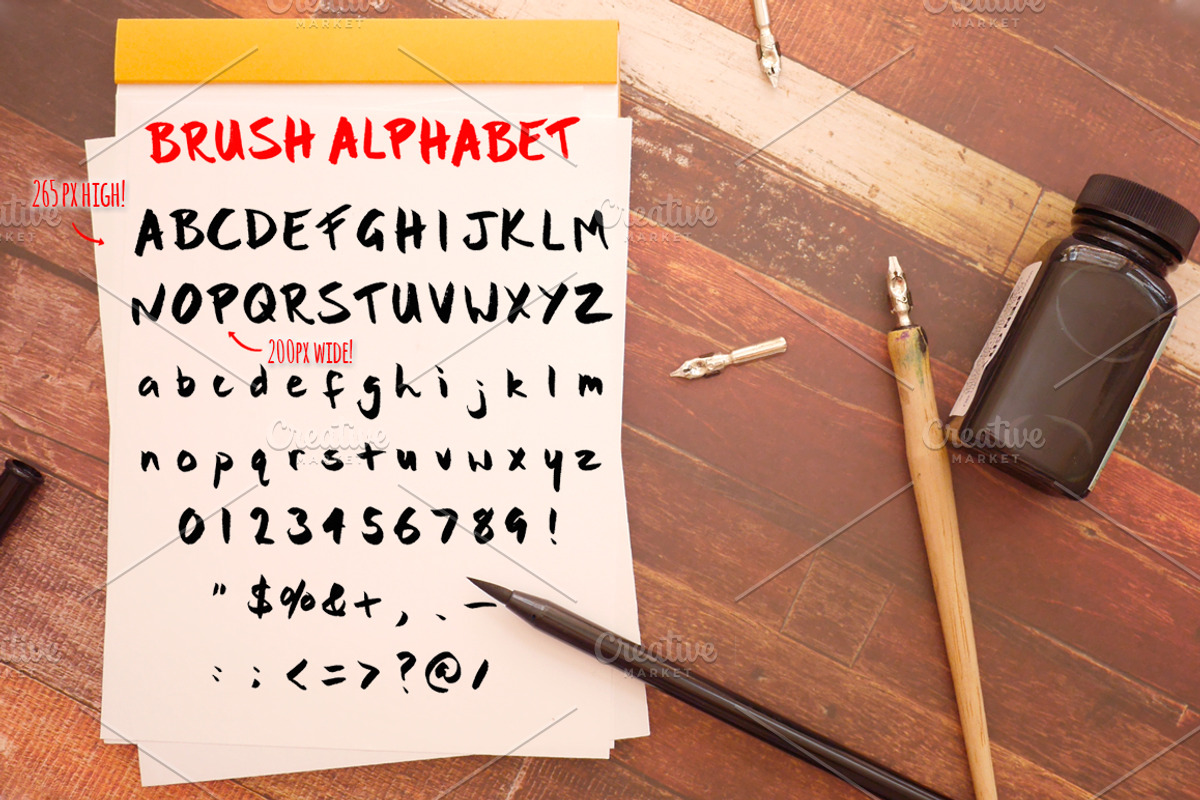 BRUSH ALPHABET
265 PX HIGH!
ABCDEFGHIJKLM
NOPQRSTUVWXYZ
200PX WIDE!
abcdefghijklm
nopqrstuvwxyz
0123456789!
" $%&+,.-
:;<=>?@/
Creative MARKET
Creative MARKET
Creative MARKET
Creative MARKET
Creative MARKET
Creative MARKET
Creative MARKET